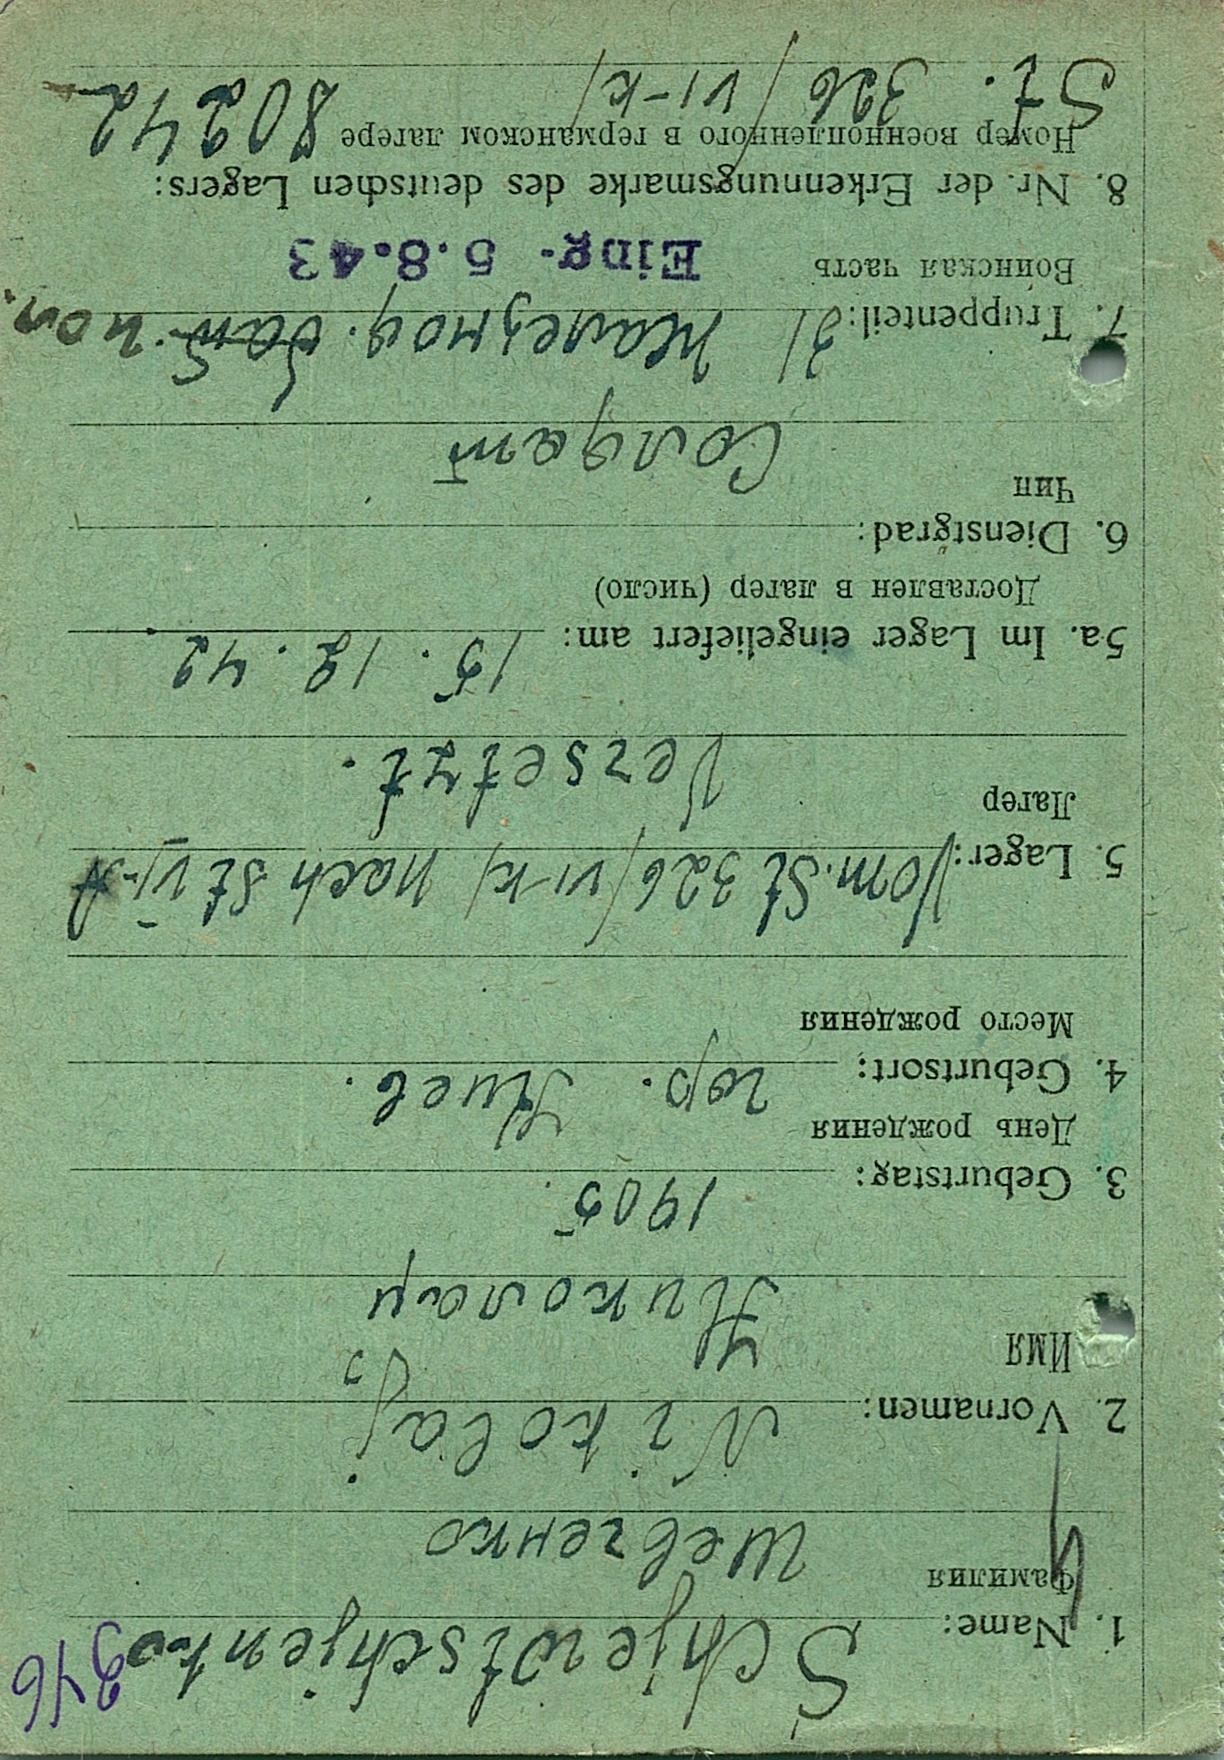 346
1. Name: Schjewtschjenko
Фамилия Шевченко
2. Vornamen: Nikolaj
Имя
Николай
3. Geburtstag: 1905
День рождения
4. Geburtsort: гор. Киев.
Место рождения
5. Lager: Vom. St 326/VI-K/ nach St VI-A
Лагер
Versetzt.
5a. Im Lager eingeliefert am: 15. 12. 42
Доставлен в лагер (число)
6. Dienstgrad:
Чин
Солдат
7. Truppenteil: 31 железнод. бат. пол.
Воинская часть Eing. 5.8.43
8. Nr. der Erkennungsmarke des deutschen Lagers:
Номер военнопленного в германском лагере 80242
St. 326/VI-K/